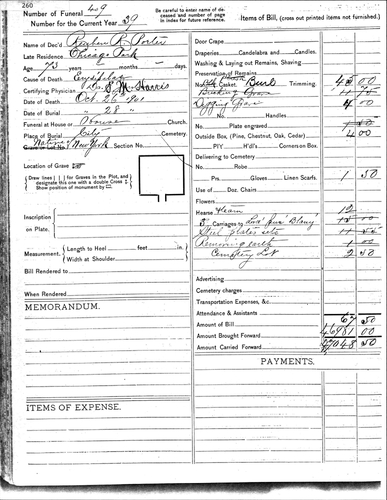 260
Number of Funeral 49
Number for the Current Year 39
Be careful to enter name of deceased and number of page in index for future reference.
Items of Bill, (cross out printed items not furnished.)
Name of Dec'd Reuben R. Porter
Late Residence Chicago Park
Age 73 years months days
Cause of Death Erysipelas
Certifying Physician Dr. S. M. Harris
Date of Death Oct. 26 1901
Date of Burial " 28 "
Funeral at House or
Place of Burial City Cemetery.
Native New York Section No.
Location of Grave
Draw lines [ ] for Graves in the Plot, and
designate this one with a double Cross
Show position of monument by
Inscription
on Plate.
Measurement,
Length to Heel feet in.
Width at Shoulder
Bill Rendered to
When Rendered
MEMORANDUM.
ITEMS OF EXPENSE.
Door Crape
Draperies, Candelabra and Candles.
Washing & Laying out Remains, Shaving
Preserving Remains
Casket, Burl Trimming. 45 00
Digging Grave 4 00
No. Handles
No. Plate engraved 1 50
Outside Box, (Pine, Chestnut, Oak, Cedar) 4 00
PIY H'dl's. Corners on Box.
Delivering to Cemetery
No. Robe
Prs. Gloves Linen Scarfs 1 50
Use of Doz. Chairs
Flowers
Hearse Team 12
3 Carriages to
Removing earth 1 00
Cemetery Lot 2 50
Advertising
Cemetery charges
Transportation Expenses, &c.
Attendance & Assistants
Amount of Bill 67 50
Amount Brought Forward
Amount Carried Forward
PAYMENTS.